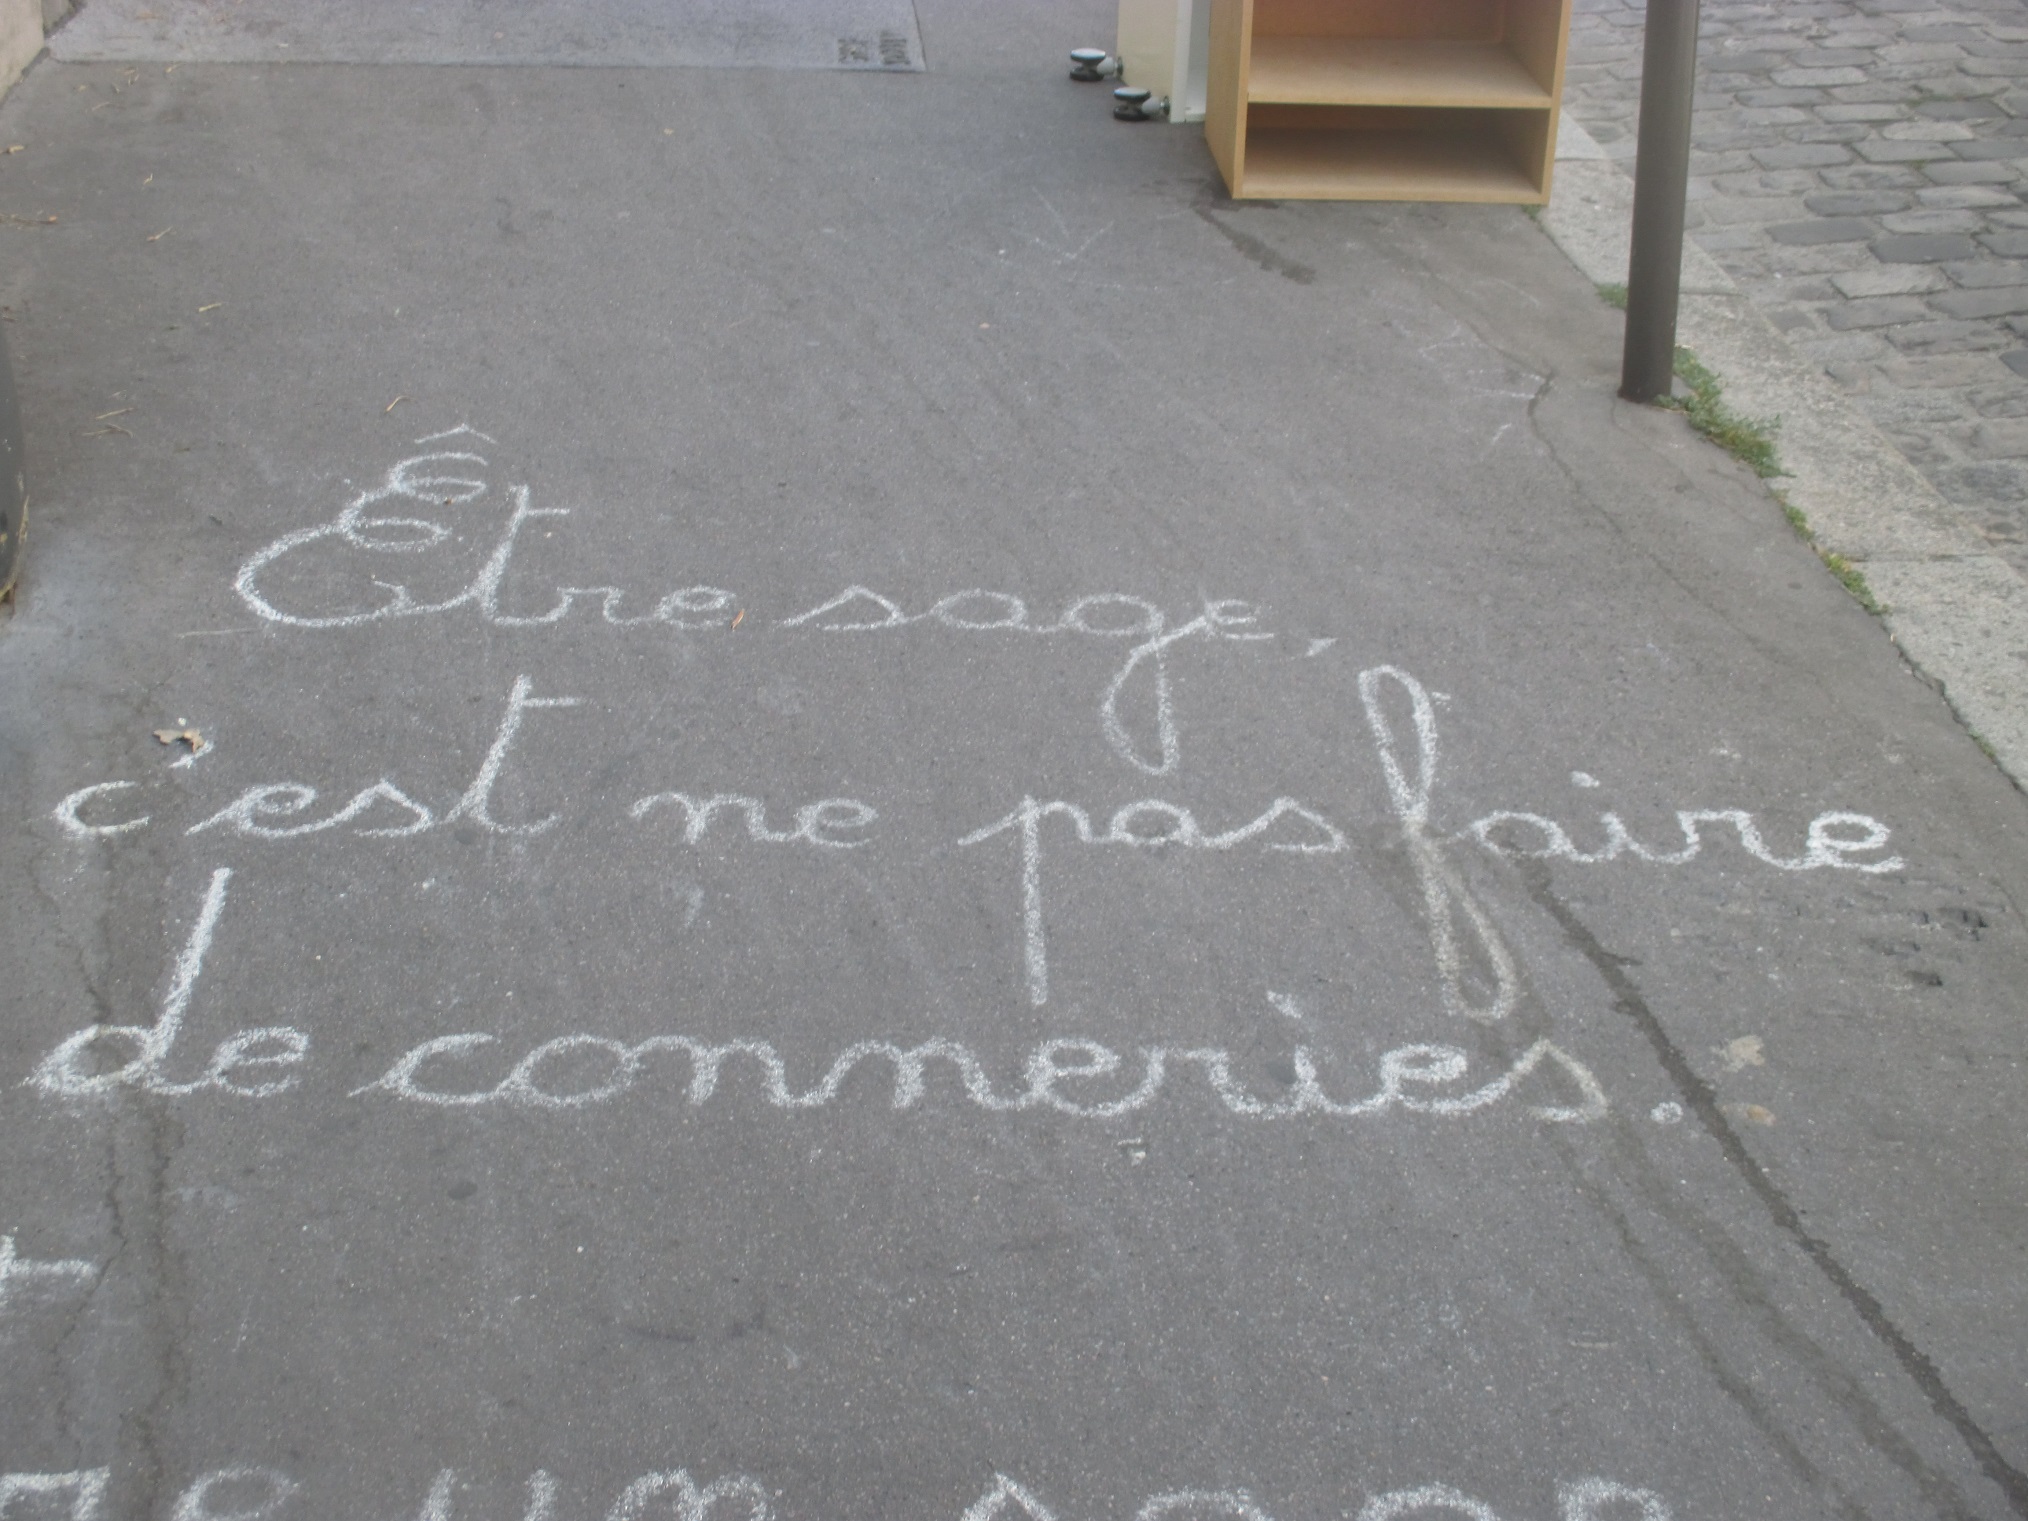 Être sage,
c'est ne pas faire
de conneries.